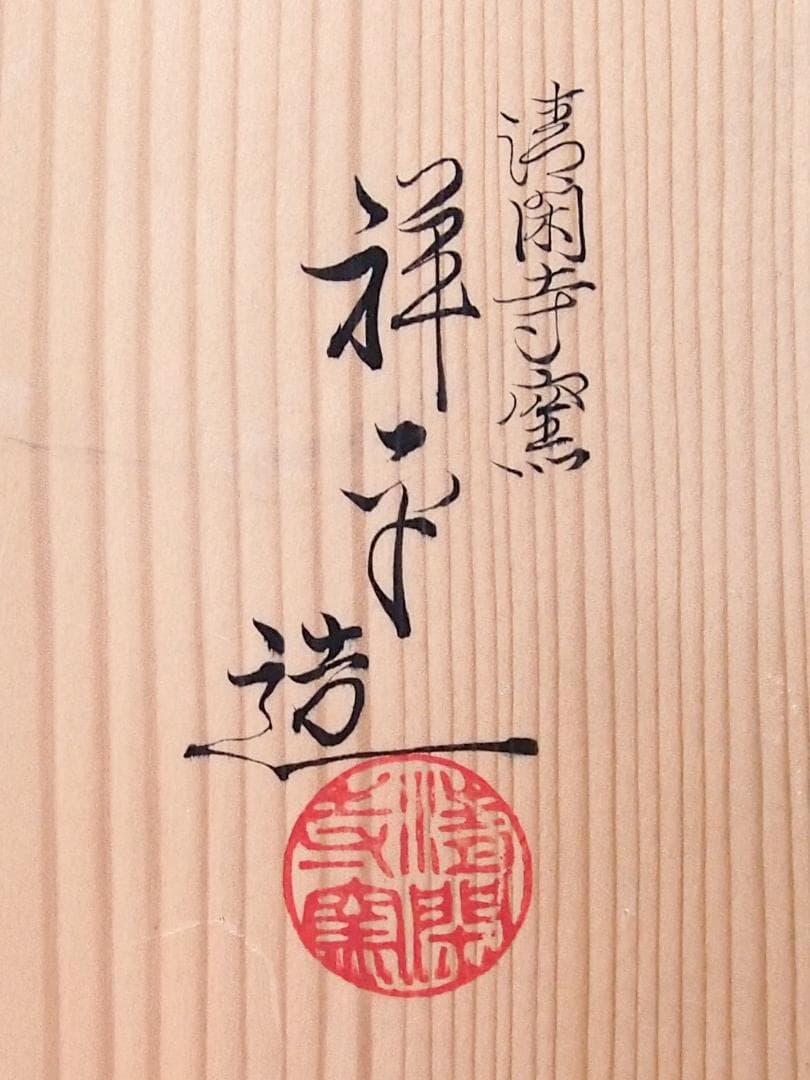 清閑寺窯
祥平造
清閑
寺窯